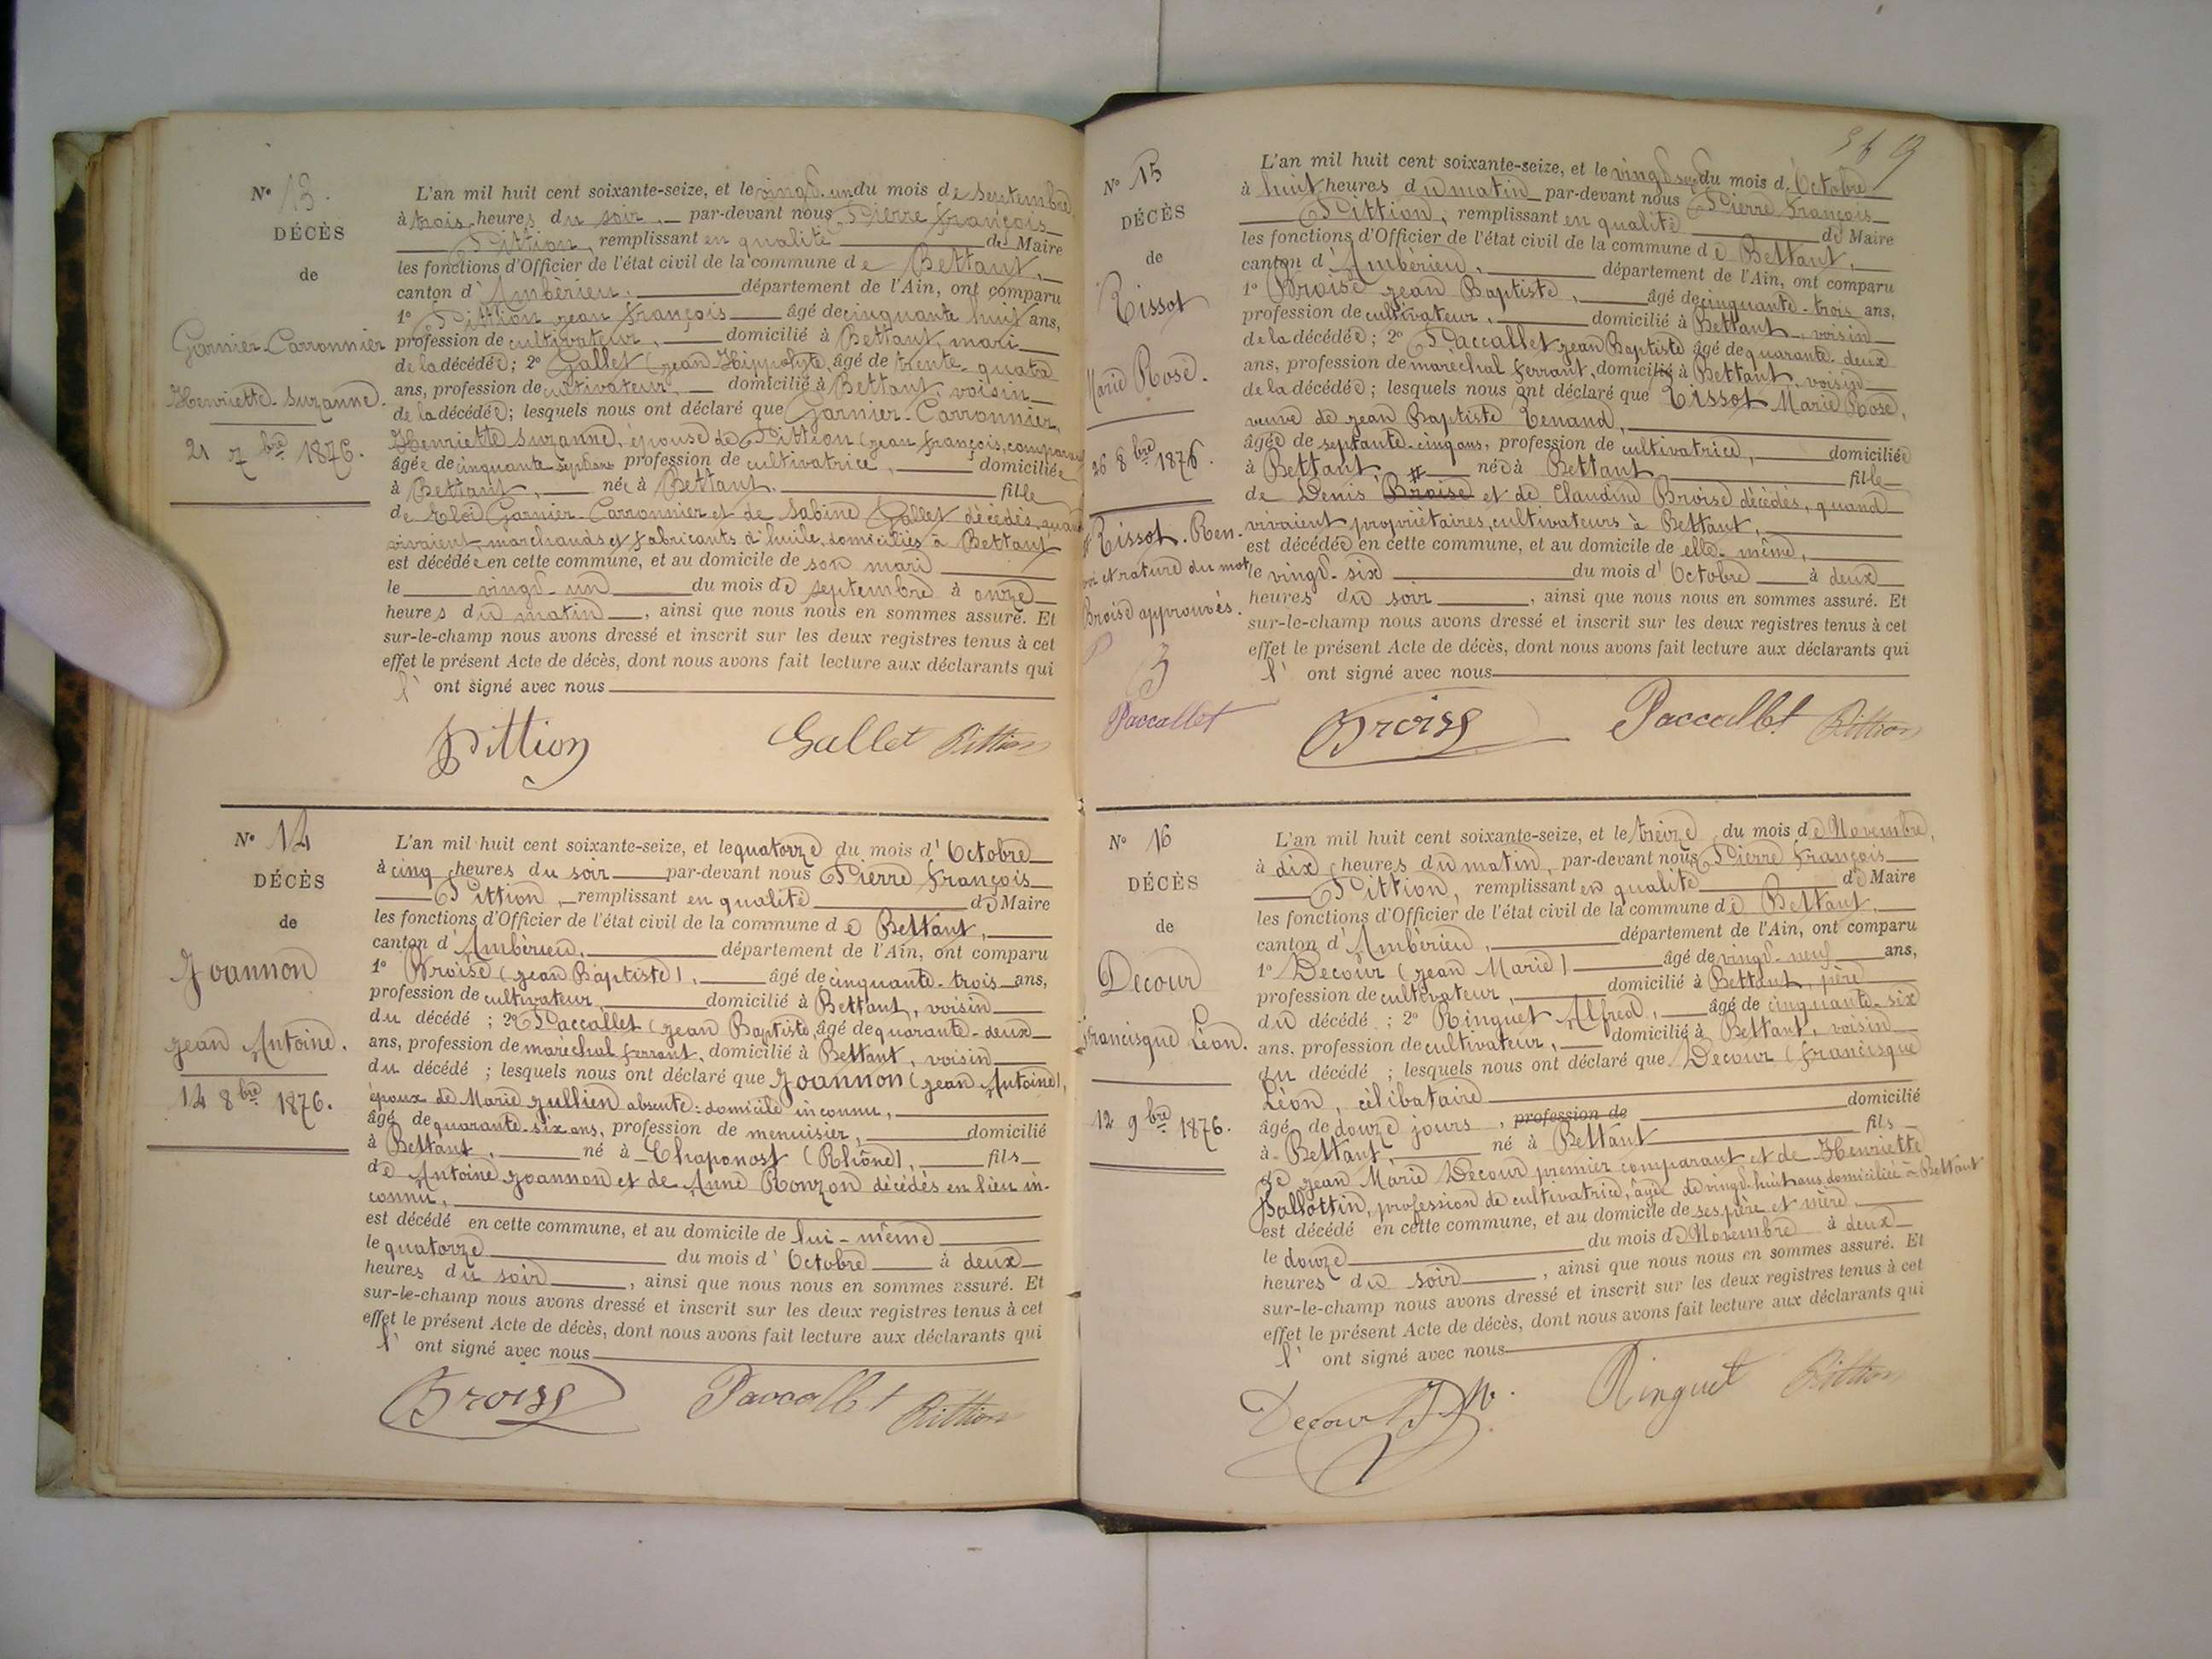 N° 13.
DÉCÈS
de
Garnier-Carronnier
Henriette-Suzanne.
21 7bre 1876.
L'an mil huit cent soixante-seize, et le vingt-un du mois de Septembre
à trois heures du soir, par-devant nous Pierre François
Pittion, remplissant en qualité de Maire
les fonctions d'Officier de l'état civil de la commune de Bettant,
canton d'Ambérieu, département de l'Ain, ont comparu
1° Pittion jean françois âgé de cinquante huit ans,
profession de cultivateur, domicilié à Bettant, mari
de la décédée; 2° Gallet (jean Hippolyte, âgé de trente-quatre
ans, profession de cultivateur, domicilié à Bettant, voisin
de la décédée; lesquels nous ont déclaré que Garnier-Carronnier,
Henriette Suzanne, épouse de Pittion (jean françois, comparant
âgée de cinquante-sept ans profession de cultivatrice, domiciliée
à Bettant, née à Bettant, fille
de Eloi Garnier-Carronnier et de Sabine Gallet décédés, quand
vivaient marchands et fabricants d'huile, domiciliés à Bettant
est décédée en cette commune, et au domicile de son mari
le vingt-un du mois de septembre à onze
heures du matin, ainsi que nous nous en sommes assuré. Et
sur-le-champ nous avons dressé et inscrit sur les deux registres tenus à cet
effet le présent Acte de décès, dont nous avons fait lecture aux déclarants qui
l' ont signé avec nous
Pittion Gallet Pittion
N° 14
DÉCÈS
de
Joannon
jean Antoine.
14 8bre 1876.
L'an mil huit cent soixante-seize, et le quatorze du mois d'Octobre
à cinq heures du soir par-devant nous Pierre François
Pittion, remplissant en qualité de Maire
les fonctions d'Officier de l'état civil de la commune de Bettant,
canton d'Ambérieu, département de l'Ain, ont comparu
1° Broise (jean Baptiste), âgé de cinquante-trois ans,
profession de cultivateur, domicilié à Bettant, voisin
du décédé ; 2° Paccallet (jean Baptiste, âgé de quarante-deux
ans, profession de maréchal ferrant, domicilié à Bettant, voisin
du décédé ; lesquels nous ont déclaré que Joannon (jean Antoine),
époux de Marie Jullien absente: domicile inconnu,
âgé de quarante-six ans, profession de menuisier, domicilié
à Bettant, né à Chaponost (Rhône), fils
de Antoine Joannon et de Anne Ronzon décédés en lieu in-
connu,
est décédé en cette commune, et au domicile de lui-même
le quatorze du mois d'Octobre à deux
heures du soir, ainsi que nous nous en sommes assuré. Et
sur-le-champ nous avons dressé et inscrit sur les deux registres tenus à cet
effet le présent Acte de décès, dont nous avons fait lecture aux déclarants qui
l' ont signé avec nous
Broise Paccallet Pittion
9
N° 15
DÉCÈS
de
Tissot
Marie Rose.
26 8bre 1876.
# Tissot. Ren-
voi et rature du mot
Broise approuvés.
P
B
Paccallet
L'an mil huit cent soixante-seize, et le vingt-sept du mois d'Octobre
à huit heures du matin par-devant nous Pierre François
Pittion, remplissant en qualité de Maire
les fonctions d'Officier de l'état civil de la commune de Bettant,
canton d'Ambérieu, département de l'Ain, ont comparu
1° Broise jean Baptiste, âgé de cinquante-trois ans,
profession de cultivateur, domicilié à Bettant, voisin
de la décédée; 2° Paccallet jean Baptiste âgé de quarante-deux
ans, profession de maréchal ferrant, domicilié à Bettant, voisin
de la décédée; lesquels nous ont déclaré que Tissot Marie Rose,
veuve de jean Baptiste Tenand,
âgée de septante-cinq ans, profession de cultivatrice, domiciliée
à Bettant, née à Bettant fille
de Denis # Broise et de Claudine Broise décédés, quand
vivaient propriétaires, cultivateurs à Bettant,
est décédée en cette commune, et au domicile de elle-même,
le vingt-six du mois d'Octobre à deux
heures du soir, ainsi que nous nous en sommes assuré. Et
sur-le-champ nous avons dressé et inscrit sur les deux registres tenus à cet
effet le présent Acte de décès, dont nous avons fait lecture aux déclarants qui
l' ont signé avec nous
Broise Paccallet Pittion
N° 16
DÉCÈS
de
Decour
francisque Léon.
12 9bre 1876.
L'an mil huit cent soixante-seize, et le treize du mois de Novembre,
à dix heures du matin, par-devant nous Pierre François
Pittion, remplissant en qualité de Maire
les fonctions d'Officier de l'état civil de la commune de Bettant,
canton d'Ambérieu, département de l'Ain, ont comparu
1° Decour (jean Marie) âgé de vingt-neuf ans,
profession de cultivateur, domicilié à Bettant, père
du décédé ; 2° Ringuet Alfred, âgé de cinquante-six
ans. profession de cultivateur, domicilié à Bettant, voisin
du décédé ; lesquels nous ont déclaré que Decour (francisque
Léon, célibataire
âgé de douze jours, profession de domicilié
à Bettant, né à Bettant fils
de jean Marie Decour premier comparant et de Henriette
Ballottin, profession de cultivatrice, âgée de vingt-huit ans, domiciliée à Bettant
est décédé en cette commune, et au domicile de ses père et mère,
le douze du mois de Novembre à deux
heures du soir, ainsi que nous nous en sommes assuré. Et
sur-le-champ nous avons dressé et inscrit sur les deux registres tenus à cet
effet le présent Acte de décès, dont nous avons fait lecture aux déclarants qui
l' ont signé avec nous
Decour J. M. Ringuet Pittion